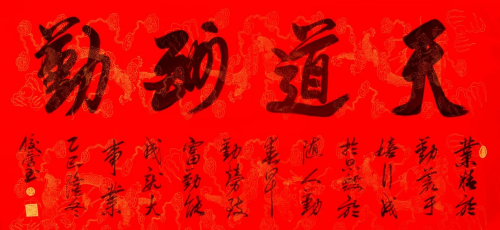 天道酬勤
業精於
勤荒于
嬉行成
於思毀於
隨人勤
春早
勤勞致
富勤能
成就大
事業
隆冬